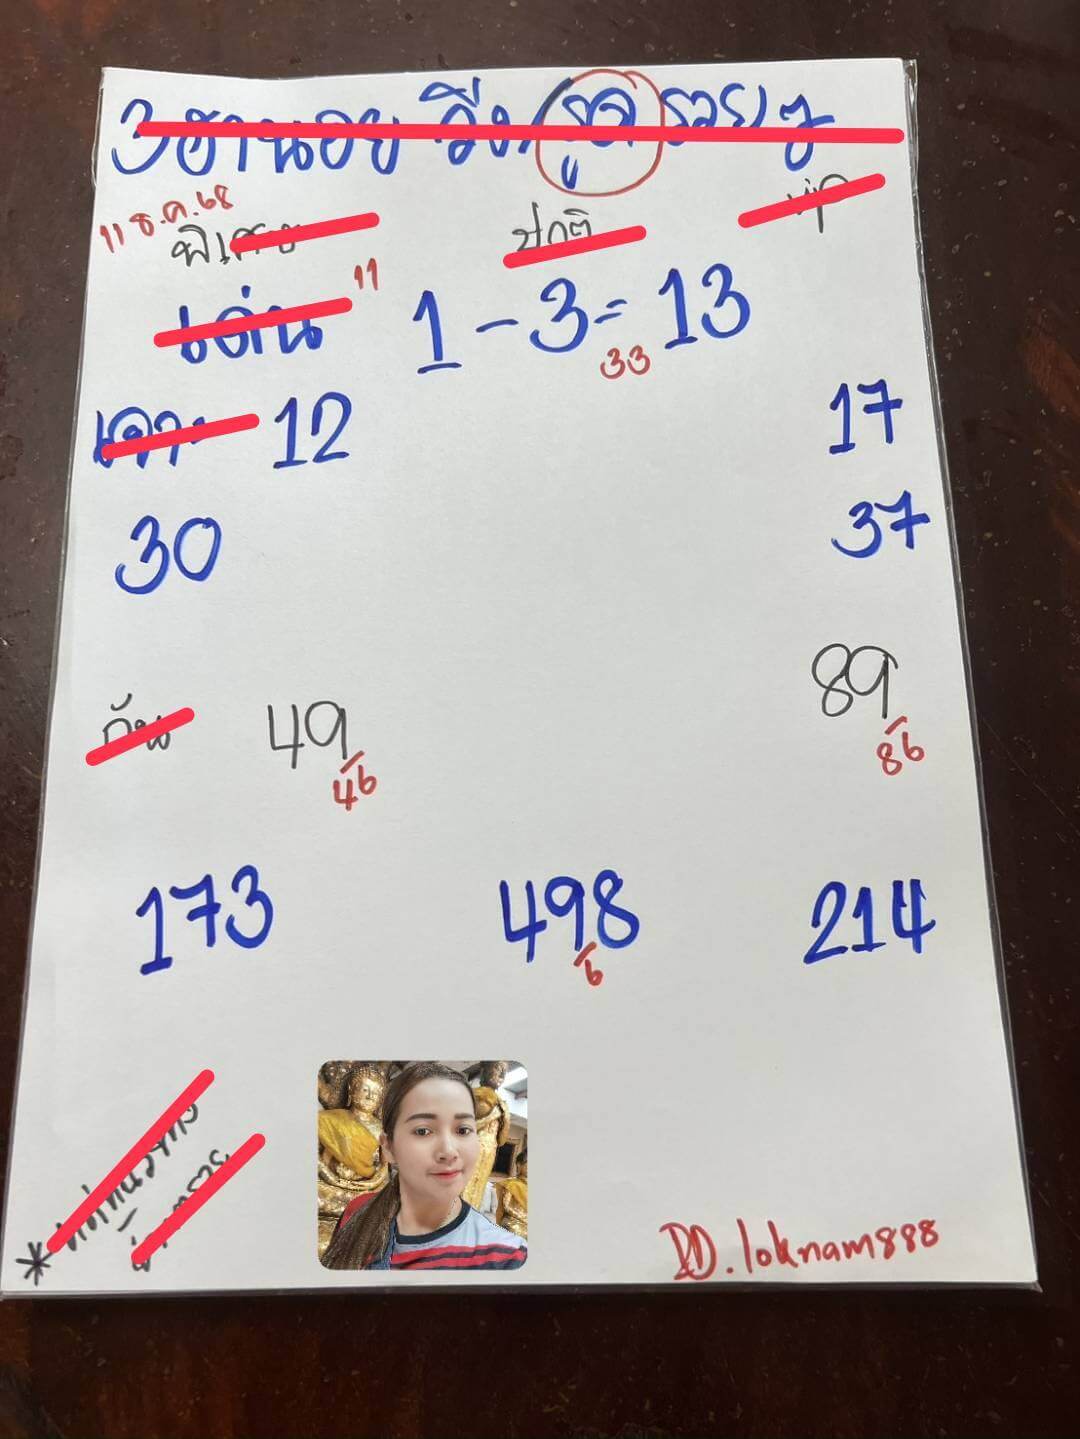 3ฮานอย วิ่ง/รูด รวยๆ
11 ธ.ค.68
พิเศษ ปกติ vip
เด่น 11 1-3=13
33
เจาะ 12 17
30 37
กัน 49 89
46 86
173 498 214
6
DD.loknam888